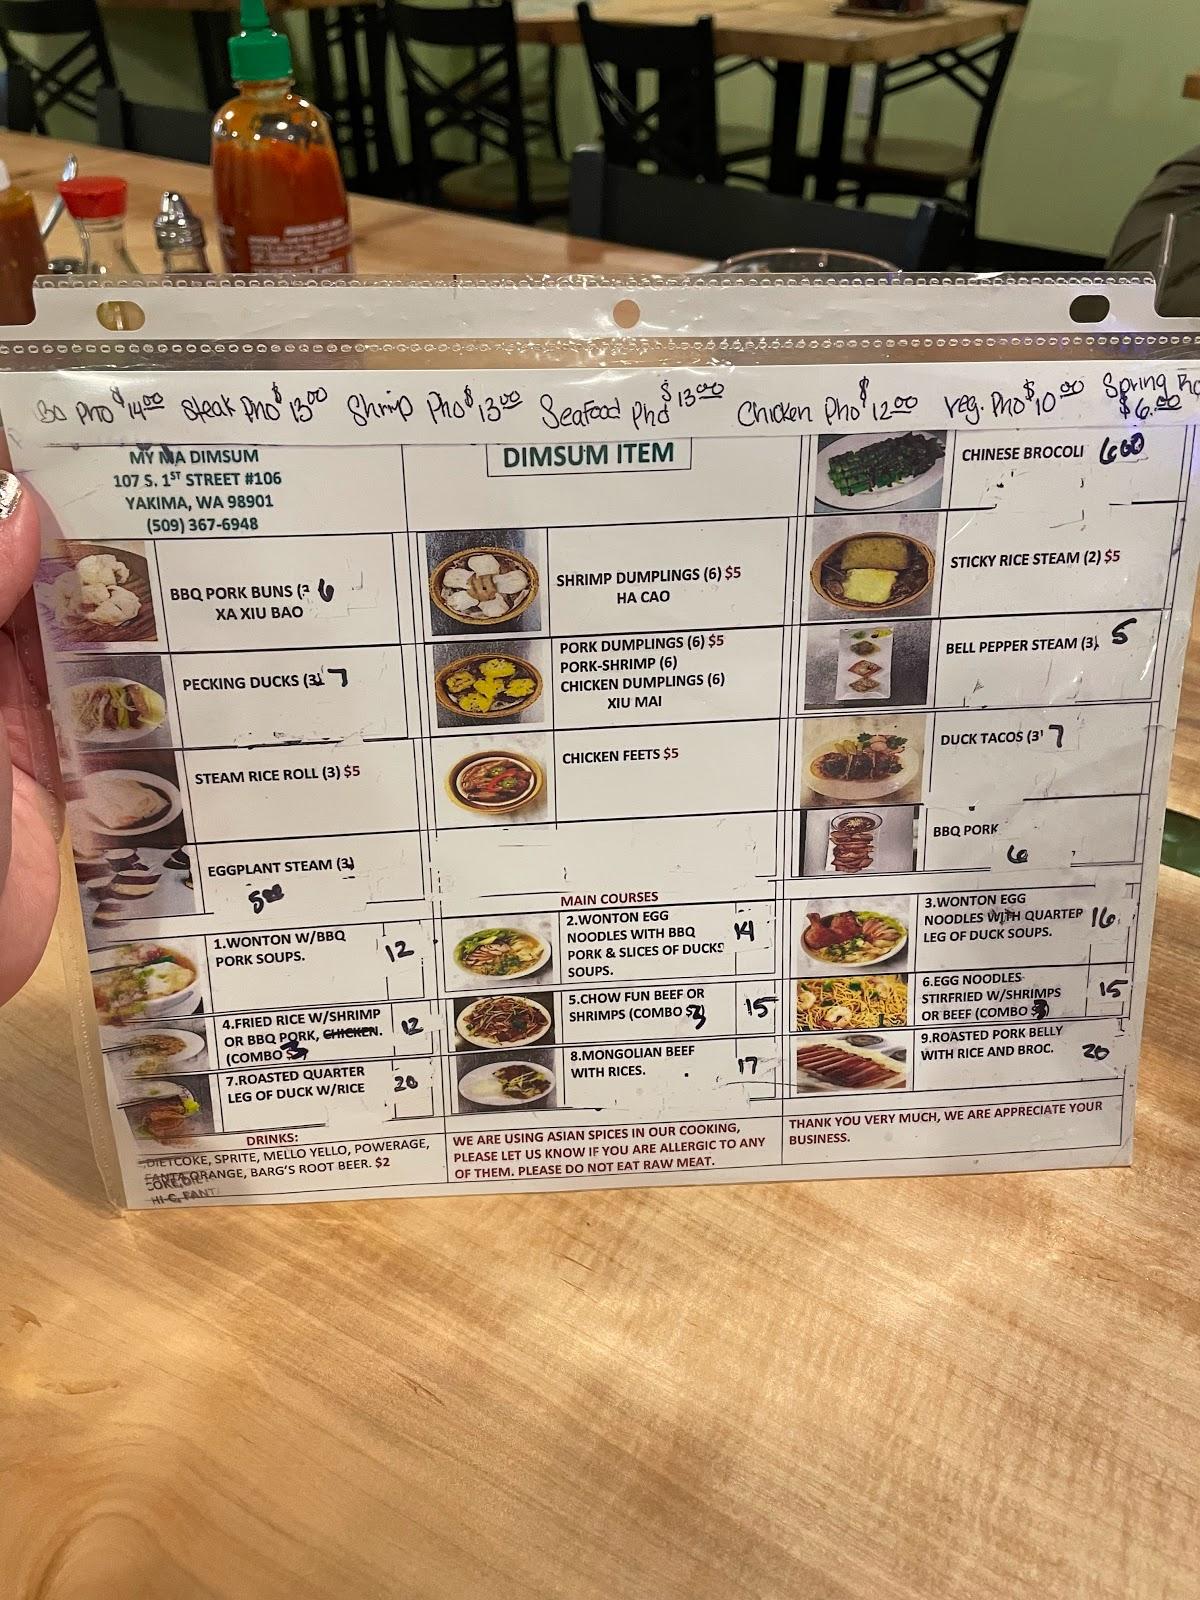 Pho $14.00 Steak Pho $13.00 Shrimp Pho $13.00 Seafood Pho $13.00 Chicken Pho $12.00 veg. Pho $10.00 Spring
$6.00
MY MA DIMSUM
107 S. 1ST STREET #106
YAKIMA, WA 98901
(509) 367-6948
DIMSUM ITEM
CHINESE BROCOLI 6.00
BBQ PORK BUNS (3 6
XA XIU BAO
SHRIMP DUMPLINGS (6) $5
HA CAO
STICKY RICE STEAM (2) $5
PECKING DUCKS (3) 7
PORK DUMPLINGS (6) $5
PORK-SHRIMP (6)
CHICKEN DUMPLINGS (6)
XIU MAI
BELL PEPPER STEAM (3) 5
STEAM RICE ROLL (3) $5
CHICKEN FEETS $5
DUCK TACOS (3) 7
EGGPLANT STEAM (3)
5.00
BBQ PORK
6
MAIN COURSES
1.WONTON W/BBQ
PORK SOUPS.
12
2.WONTON EGG
NOODLES WITH BBQ
PORK & SLICES OF DUCKS
SOUPS.
14
3.WONTON EGG
NOODLES WITH QUARTER
LEG OF DUCK SOUPS.
16
4.FRIED RICE W/SHRIMP
OR BBQ PORK, CHICKEN.
(COMBO $3
12
5.CHOW FUN BEEF OR
SHRIMPS (COMBO $3)
15
6.EGG NOODLES
STIRFRIED W/SHRIMPS
OR BEEF (COMBO 3)
15
7.ROASTED QUARTER
LEG OF DUCK W/RICE
20
8.MONGOLIAN BEEF
WITH RICES.
17
9.ROASTED PORK BELLY
WITH RICE AND BROC.
20
DRINKS:
DIETCOKE, SPRITE, MELLO YELLO, POWERAGE,
FANTA ORANGE, BARG'S ROOT BEER. $2
HI-C, FANT
WE ARE USING ASIAN SPICES IN OUR COOKING,
PLEASE LET US KNOW IF YOU ARE ALLERGIC TO ANY
OF THEM. PLEASE DO NOT EAT RAW MEAT.
THANK YOU VERY MUCH, WE ARE APPRECIATE YOUR
BUSINESS.